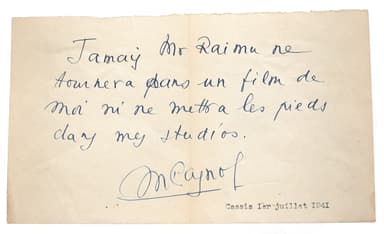 Jamais Mr Raimu ne
tournera dans un film de
moi ni ne mettra les pieds
dans mes studios.
M Pagnol
Cassis 1er juillet 1941